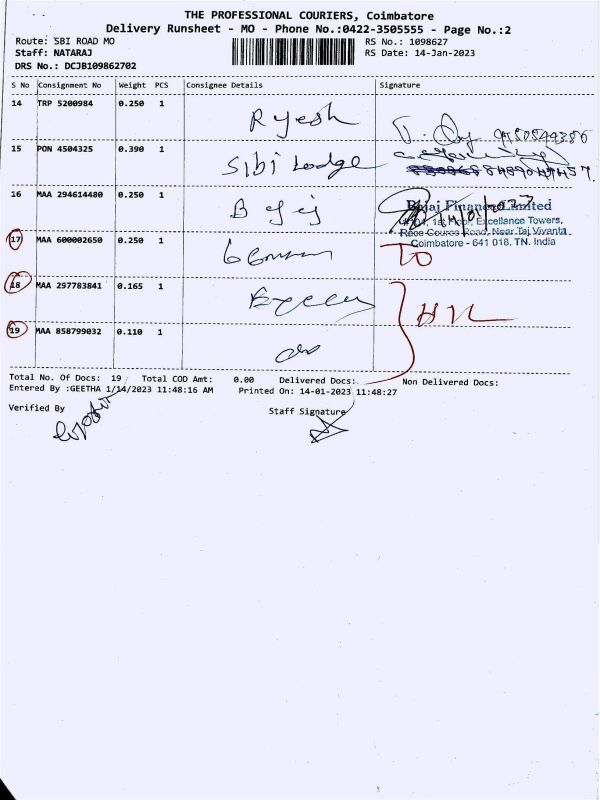 THE PROFESSIONAL COURIERS, Coimbatore
Delivery Runsheet - MO - Phone No.:0422-3505555 - Page No.:2
Route: SBI ROAD MO
RS No.: 1098627
Staff: NATARAJ
RS Date: 14-Jan-2023
DRS No.: DCJB109862702
S No Consignment No Weight PCS Consignee Details Signature
14 TRP 5200984 0.250 1
15 PON 4504325 0.390 1 Sibi Lodge
16 MAA 294614480 0.250 1
Bajaj Finance Limited
1st Floor, Excellance Towers,
Race Course Road, Near Taj Vivanta,
Coimbatore - 641 018. TN. India
17 MAA 600002650 0.250 1 TO
18 MAA 297783841 0.165 1
19 MAA 858799032 0.110 1
Total No. Of Docs: 19 Total COD Amt: 0.00 Delivered Docs: Non Delivered Docs:
Entered By :GEETHA 1/14/2023 11:48:16 AM Printed On: 14-01-2023 11:48:27
Verified By Staff Signature